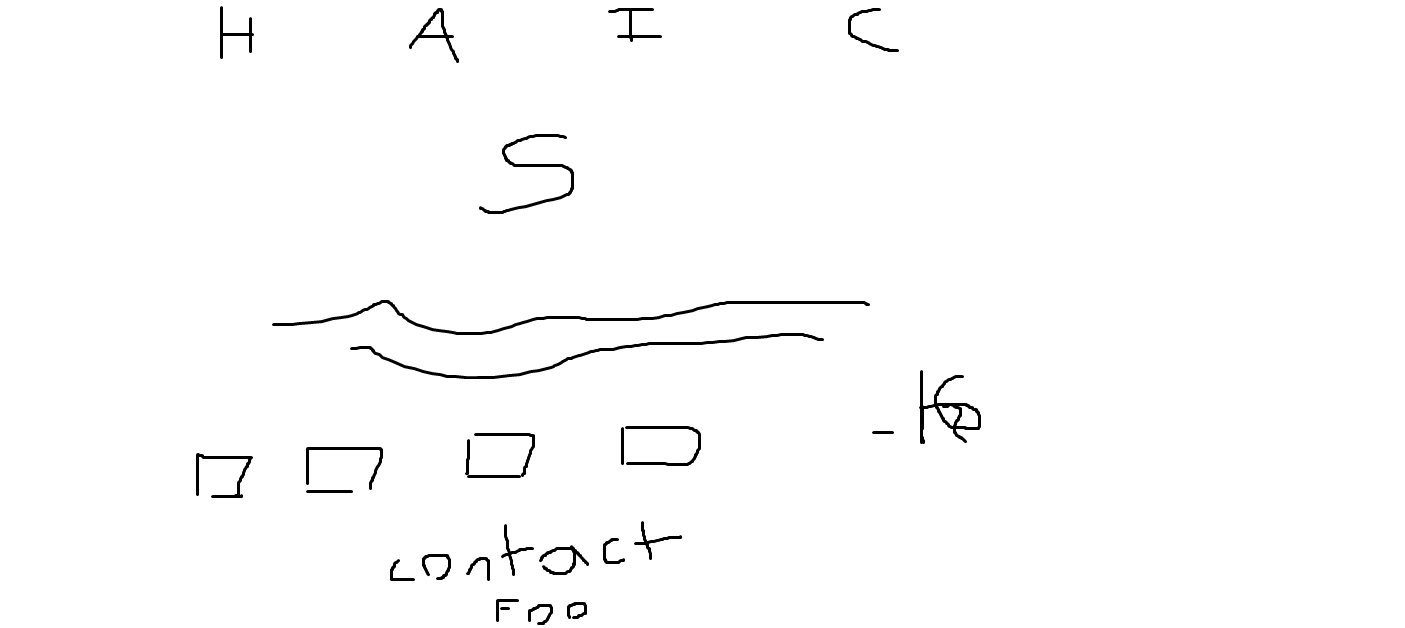 H A I C
S
contact
Foo